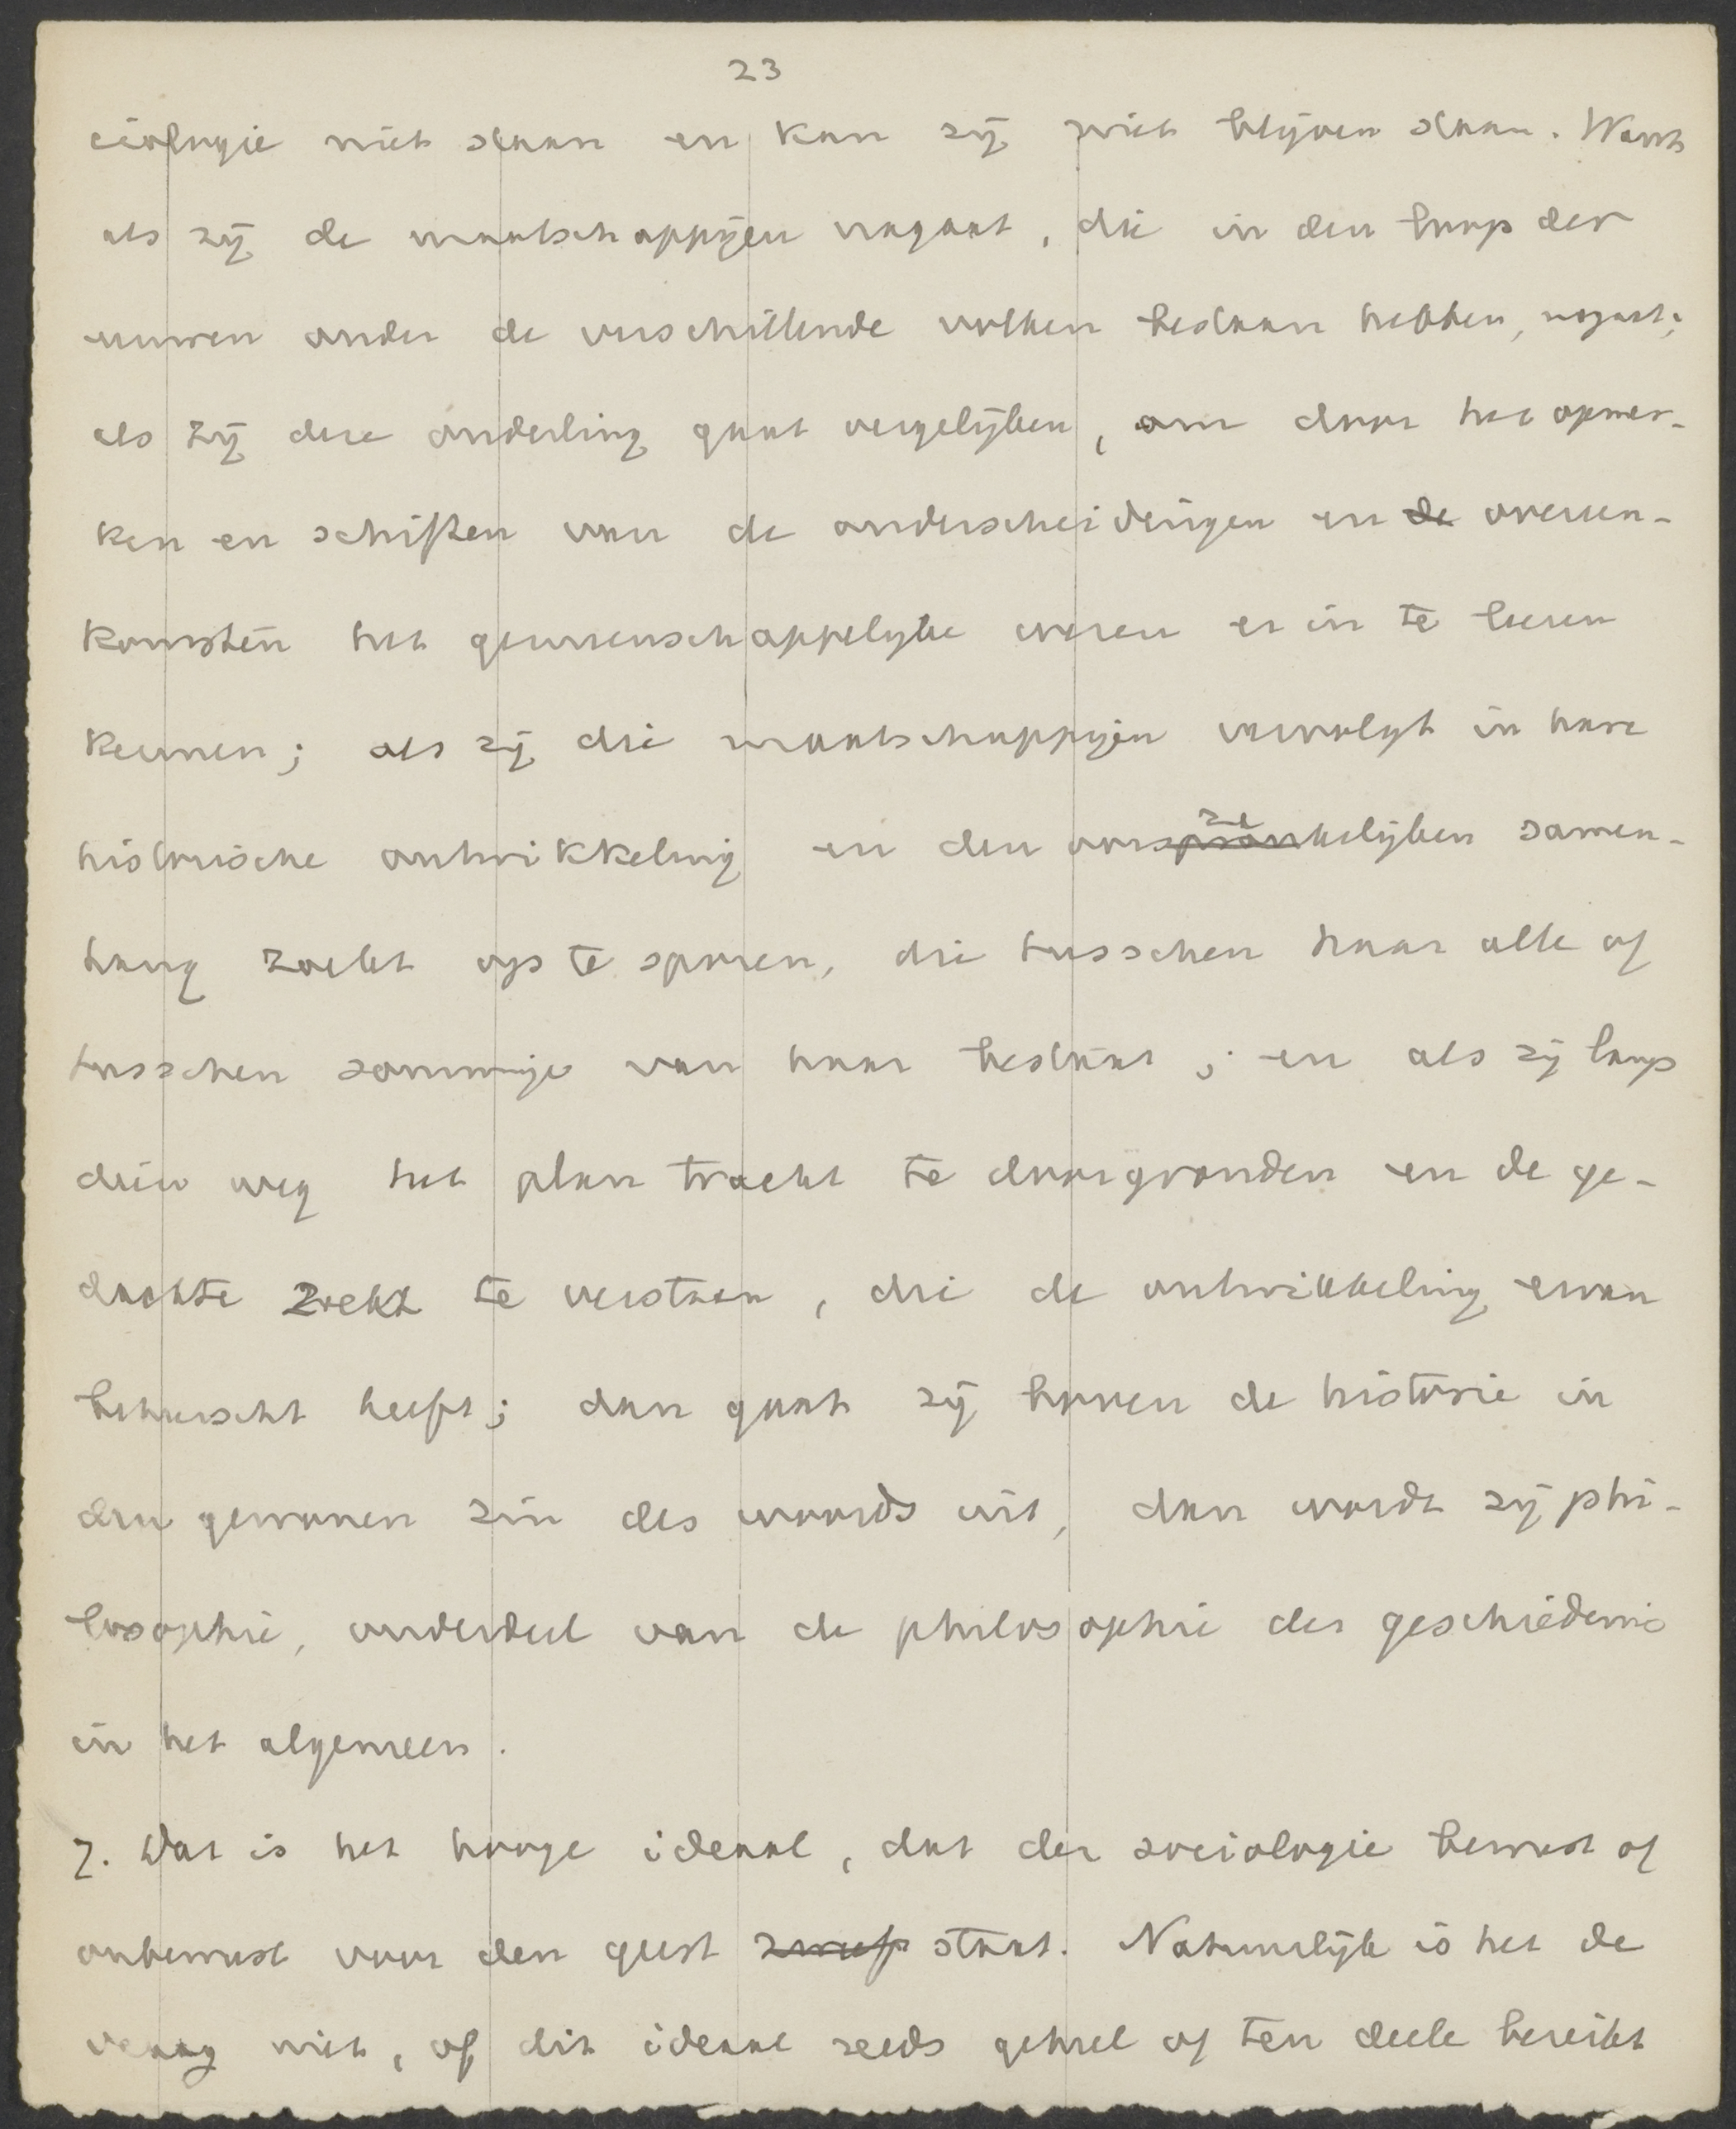 23
ciologie niet staan en kan zij niet blijven staan. Want
als zij de maatschappijen nagaat, die in den loop der
eeuwen onder de verschillende volken bestaan hebben, nagaat;
als zij deze onderling gaat vergelijken, om door het opmer-
ken en schiften van de onderscheidingen en de overeen-
komsten het gemeenschappelijke wezen er in te leeren
kennen; als zij die maatschappijen vervolgt in hare
historische ontwikkeling en den oorzakelijken samen-
hang zoekt op te sporen, die tusschen haar alle of
tusschen sommige van haar bestaat; en als zij langs
dien weg het plan tracht te doorgronden en de ge-
dachte zoekt te verstaan, die de ontwikkeling ervan
beheerscht heeft; dan gaat zij boven de historie in
den gewonen zin des woords uit, dan wordt zij phi-
losophie, onderdeel van de philosophie der geschiedenis
in het algemeen.
7. Dat is het hooge ideaal, dat der sociologie bewust of
onbewust voor den geest staat. Natuurlijk is het de
vraag niet, of dit ideaal reeds geheel of ten deele bereikt